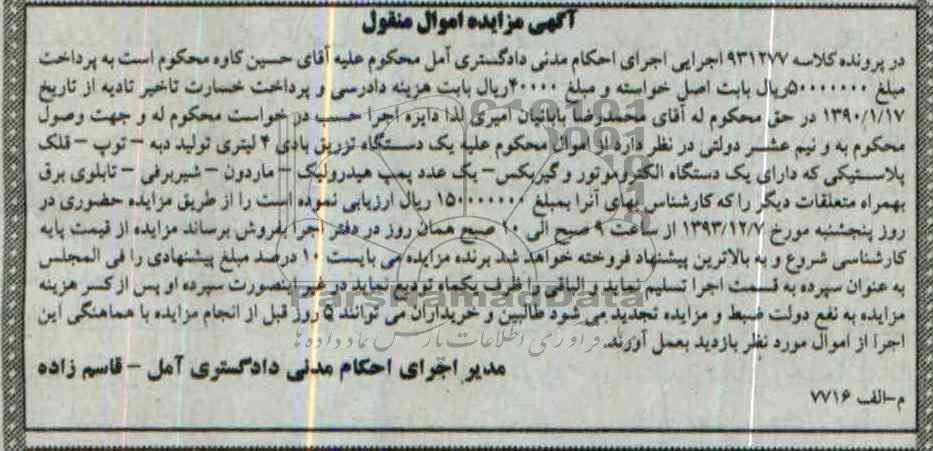 آگهی مزایده اموال منقول
در پرونده کلاسه ۹۳۱۲۷۷ اجرایی اجرای احکام مدنی دادگستری آمل محکوم علیه آقای حسین کاوه محکوم است به پرداخت
مبلغ ۵۰۰۰۰۰۰۰ریال بابت اصل خواسته و مبلغ ۴۰۰۰۰ریال بابت هزینه دادرسی و پرداخت خسارت تاخیر تادیه از تاریخ
۱۳۹۰/۱/۱۷ در حق محکوم له آقای محمدرضا بابائیان امیری لذا دایره اجرا حسب در خواست محکوم له و جهت وصول
محکوم به و نیم عشر دولتی در نظر دارد از اموال محکوم علیه یک دستگاه تزریق بادی ۴ لیتری تولید دبه - توپ - قلک
پلاستیکی که دارای یک دستگاه الکتروموتور و گیربکس- یک عدد پمپ هیدرولیک - ماردون - شیربرقی - تابلوی برق
بهمراه متعلقات دیگر را که کارشناس بهای آنرا بمبلغ ۱۵۰۰۰۰۰۰۰ ریال ارزیابی نموده است را از طریق مزایده حضوری در
روز پنجشنبه مورخ ۱۳۹۳/۱۲/۷ از ساعت ۹ صبح الی ۱۰ صبح همان روز در دفتر اجرا بفروش برساند مزایده از قیمت پایه
کارشناسی شروع و به بالاترین پیشنهاد فروخته خواهد شد برنده مزایده می بایست ۱۰ درصد مبلغ پیشنهادی را فی المجلس
به عنوان سپرده به قسمت اجرا تسلیم نماید و الباقی را ظرف یکماه تودیع نماید در غیر اینصورت سپرده او پس از کسر هزینه
مزایده به نفع دولت ضبط و مزایده تجدید می شود طالبین و خریداران می توانند ۵ روز قبل از انجام مزایده با هماهنگی این
اجرا از اموال مورد نظر بازدید بعمل آورند.
مدیر اجرای احکام مدنی دادگستری آمل - قاسم زاده
م-الف ۷۷۱۶
ParsNamadData